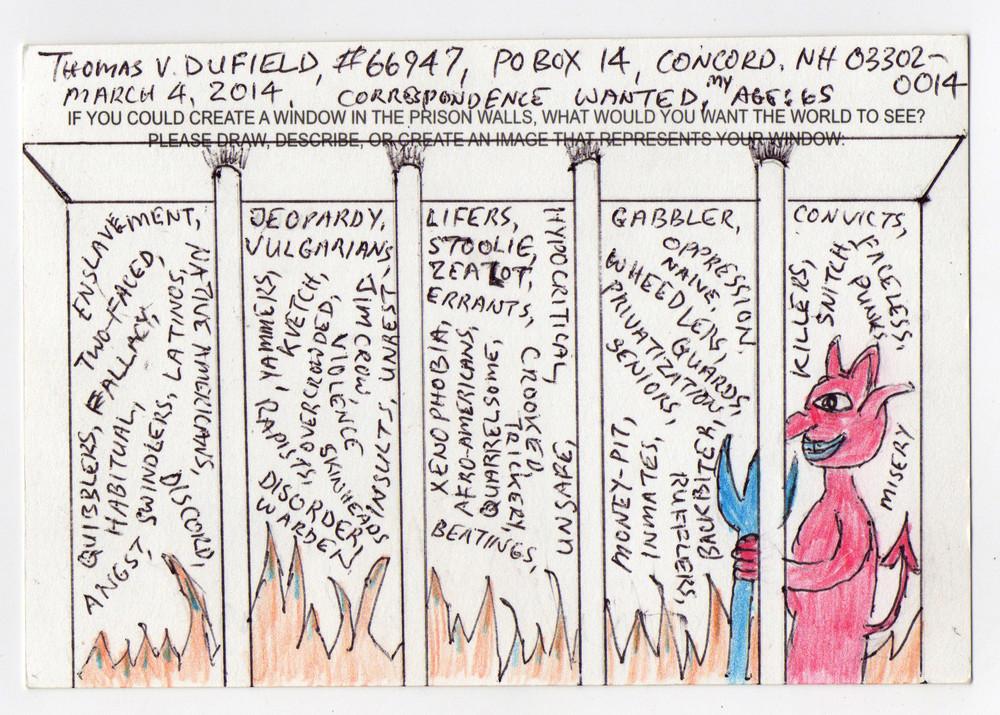 THOMAS V. DUFIELD, #66947, PO BOX 14, CONCORD, NH 03302-0014
MARCH 4, 2014. CORRESPONDENCE WANTED, MY AGE: 65
IF YOU COULD CREATE A WINDOW IN THE PRISON WALLS, WHAT WOULD YOU WANT THE WORLD TO SEE?
PLEASE DRAW, DESCRIBE, OR CREATE AN IMAGE THAT REPRESENTS YOUR WINDOW:
ENSLAVEMENT,
TWO-FACED,
QUIBBLERS, FALLACY,
HABITUAL,
ANGST, SWINDLERS, LATINOS,
NATIVE AMERICANS,
DISCORD,
JEOPARDY,
VULGARIANS,
YAMMERS,
KVETCH,
RAPISTS, OVERCROWDED,
VIOLENCE
JIM CROW,
SKINHEADS
INSULTS, UNREST,
DISORDER,
WARDEN
LIFERS,
STOOLIE,
ZEALOT,
ERRANTS,
XENOPHOBIA,
AFRO-AMERICANS,
QUARRELSOME,
CROOKED,
TRICKERY
HYPOCRITICAL,
UNSAFE,
BEATINGS,
GABBLER,
OPPRESSION.
NAIVE,
WHEEDLERS, GUARDS,
PRIVATIZATION
SENIORS,
MONEY-PIT,
INMATES,
RUFFLERS,
BACKBITER,
CONVICTS,
FACELESS,
PUNK,
SNITCH,
KILLERS,
MISERY